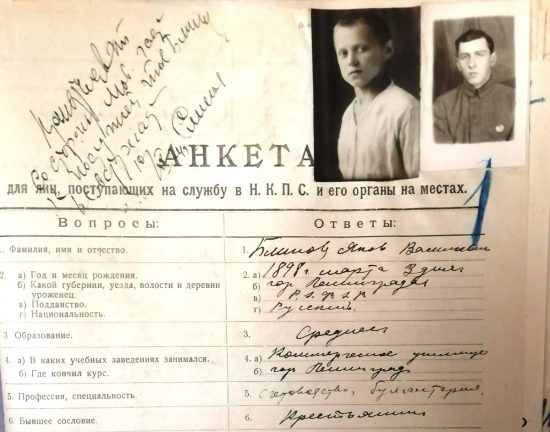 АНКЕТА
для лиц, поступающих на службу в Н. К. П. С. и его органы на местах.
Вопросы: Ответы:
1. Фамилия, имя и отчество. 1. Блинов Яков Васильевич
2. а) Год и месяц рождения. 2. а) 1898 г. марта 3 дня
б) Какой губернии, уезда, волости и деревни уроженец. б) гор Ленинграда
в) Подданство. в) Р. С. Ф. С. Р
г) Национальность. г) Русский.
3 Образование. 3. Среднее
4. а) В каких учебных заведениях занимался. 4. а) Коммерческое училище
б) Где кончил курс. б) гор Ленинград
5. Профессия, специальность. 5. Счетоводство, бухгалтерия.
6. Бывшее сословие. 6. Крестьянин